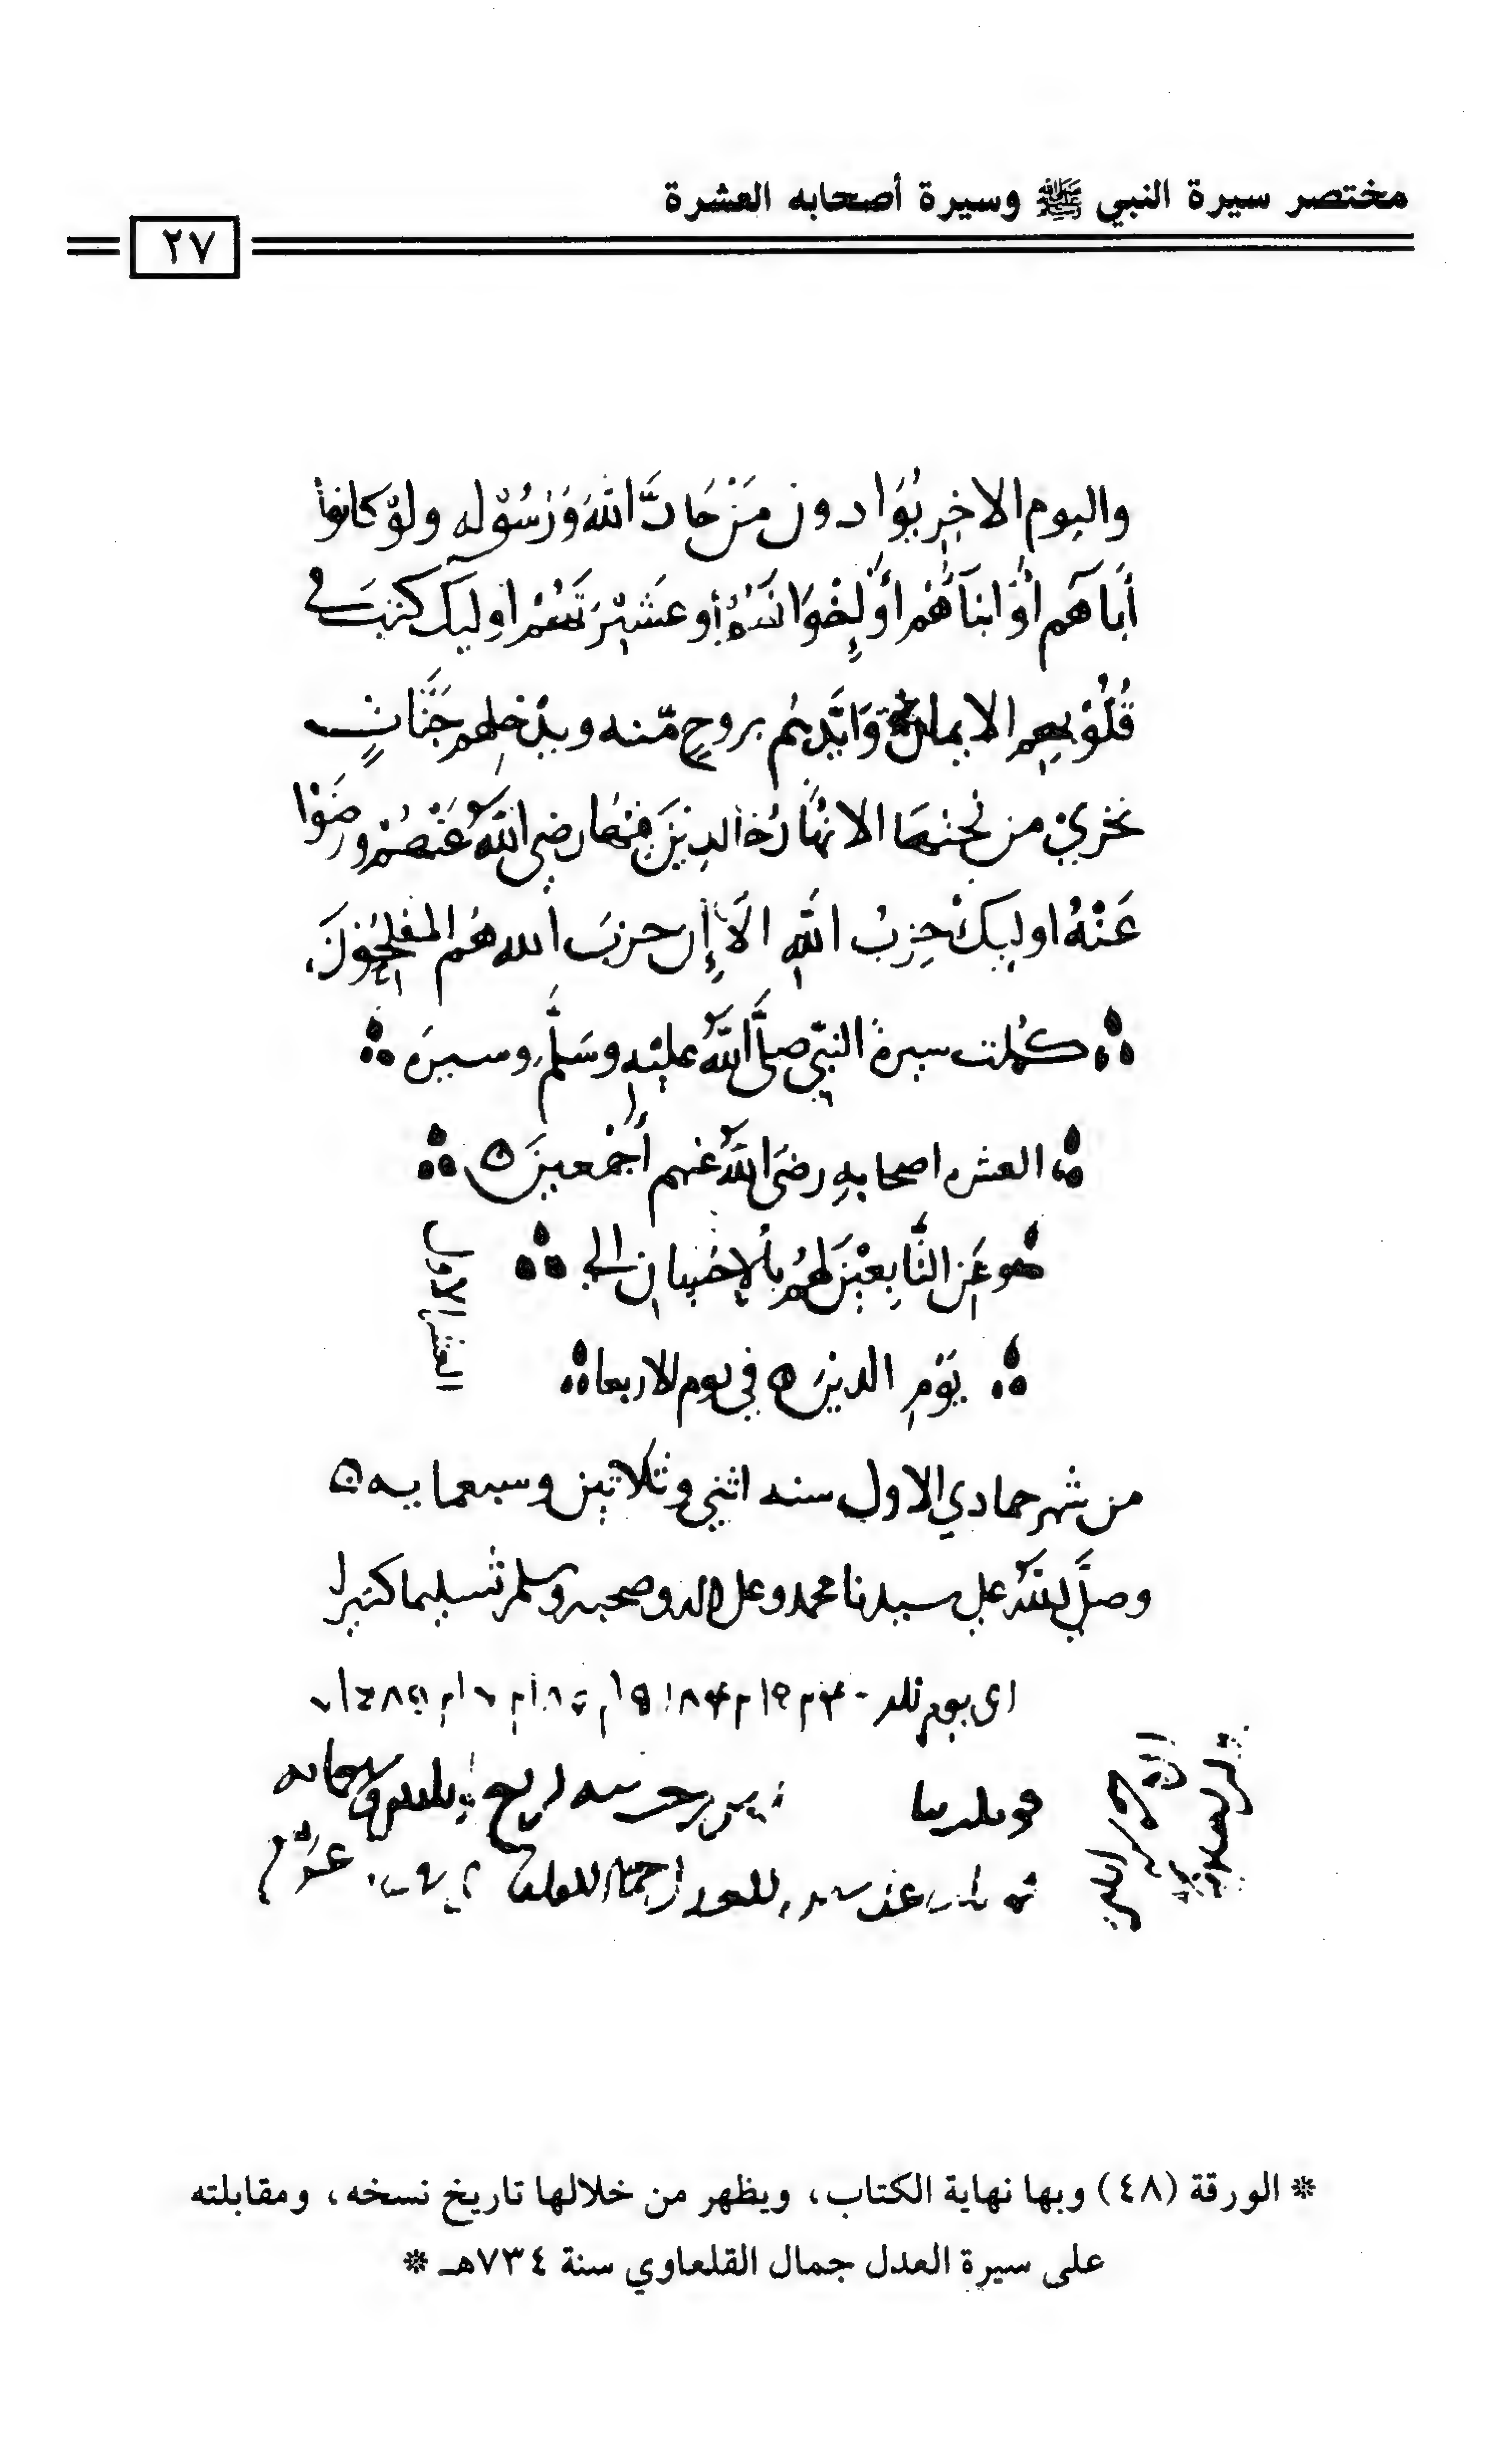 مختصر سيرة النبي ﷺ وسيرة أصحابه العشرة
٢٧
واليوم الاخِرِ يُوَادون مَنْ حَادَّ اللهَ وَرَسُوْله ولوْ كانوا
أَباهم أَوْ ابنآهُمْ أَوْ إِخْوَانَهُمْ أو عَشيْرَتَهُمْ اوليك كتبَ في
قُلُوْبِهم الايمان وَايَّدهم بروحٍ مّنه ويدْخلهم جَنَّاتٍ
تجري من تحتها الانهَارُ خالدِيْنَ فيْهَا رضي اللهُ عَنْهُمْ ورضَوْا
عَنْهُ اوليِكْ حِزبُ اللهِ الَا إِن حزبَ الله هُم المفلِحُوْنَ
كملت سيرة النبيّ صلَّى اللهُ عليْهِ وسَلَّم وسيرَة
العشره اصحابهِ رضيَ اللهُ عنهم أَجْمعينَ ٥
هو عَن التَّابِعيْنَ لهُمْ بالإِحْسان الى
يَوْمِ الدينَ ٥ في يوم الاربعاء
العشر الاول
من شهر جمادي الاول سنه اثني وثلاثين وسبعمايه ٥
وصلَّى اللهُ على سيدنا محمد وعلى اله وصحبه وسلم تسليما كثيرا
* الورقة (٤٨) وبها نهاية الكتاب، ويظهر من خلالها تاريخ نسخه، ومقابلته
على سيرة العدل جمال القلعاوي سنة ٧٣٤هـ *